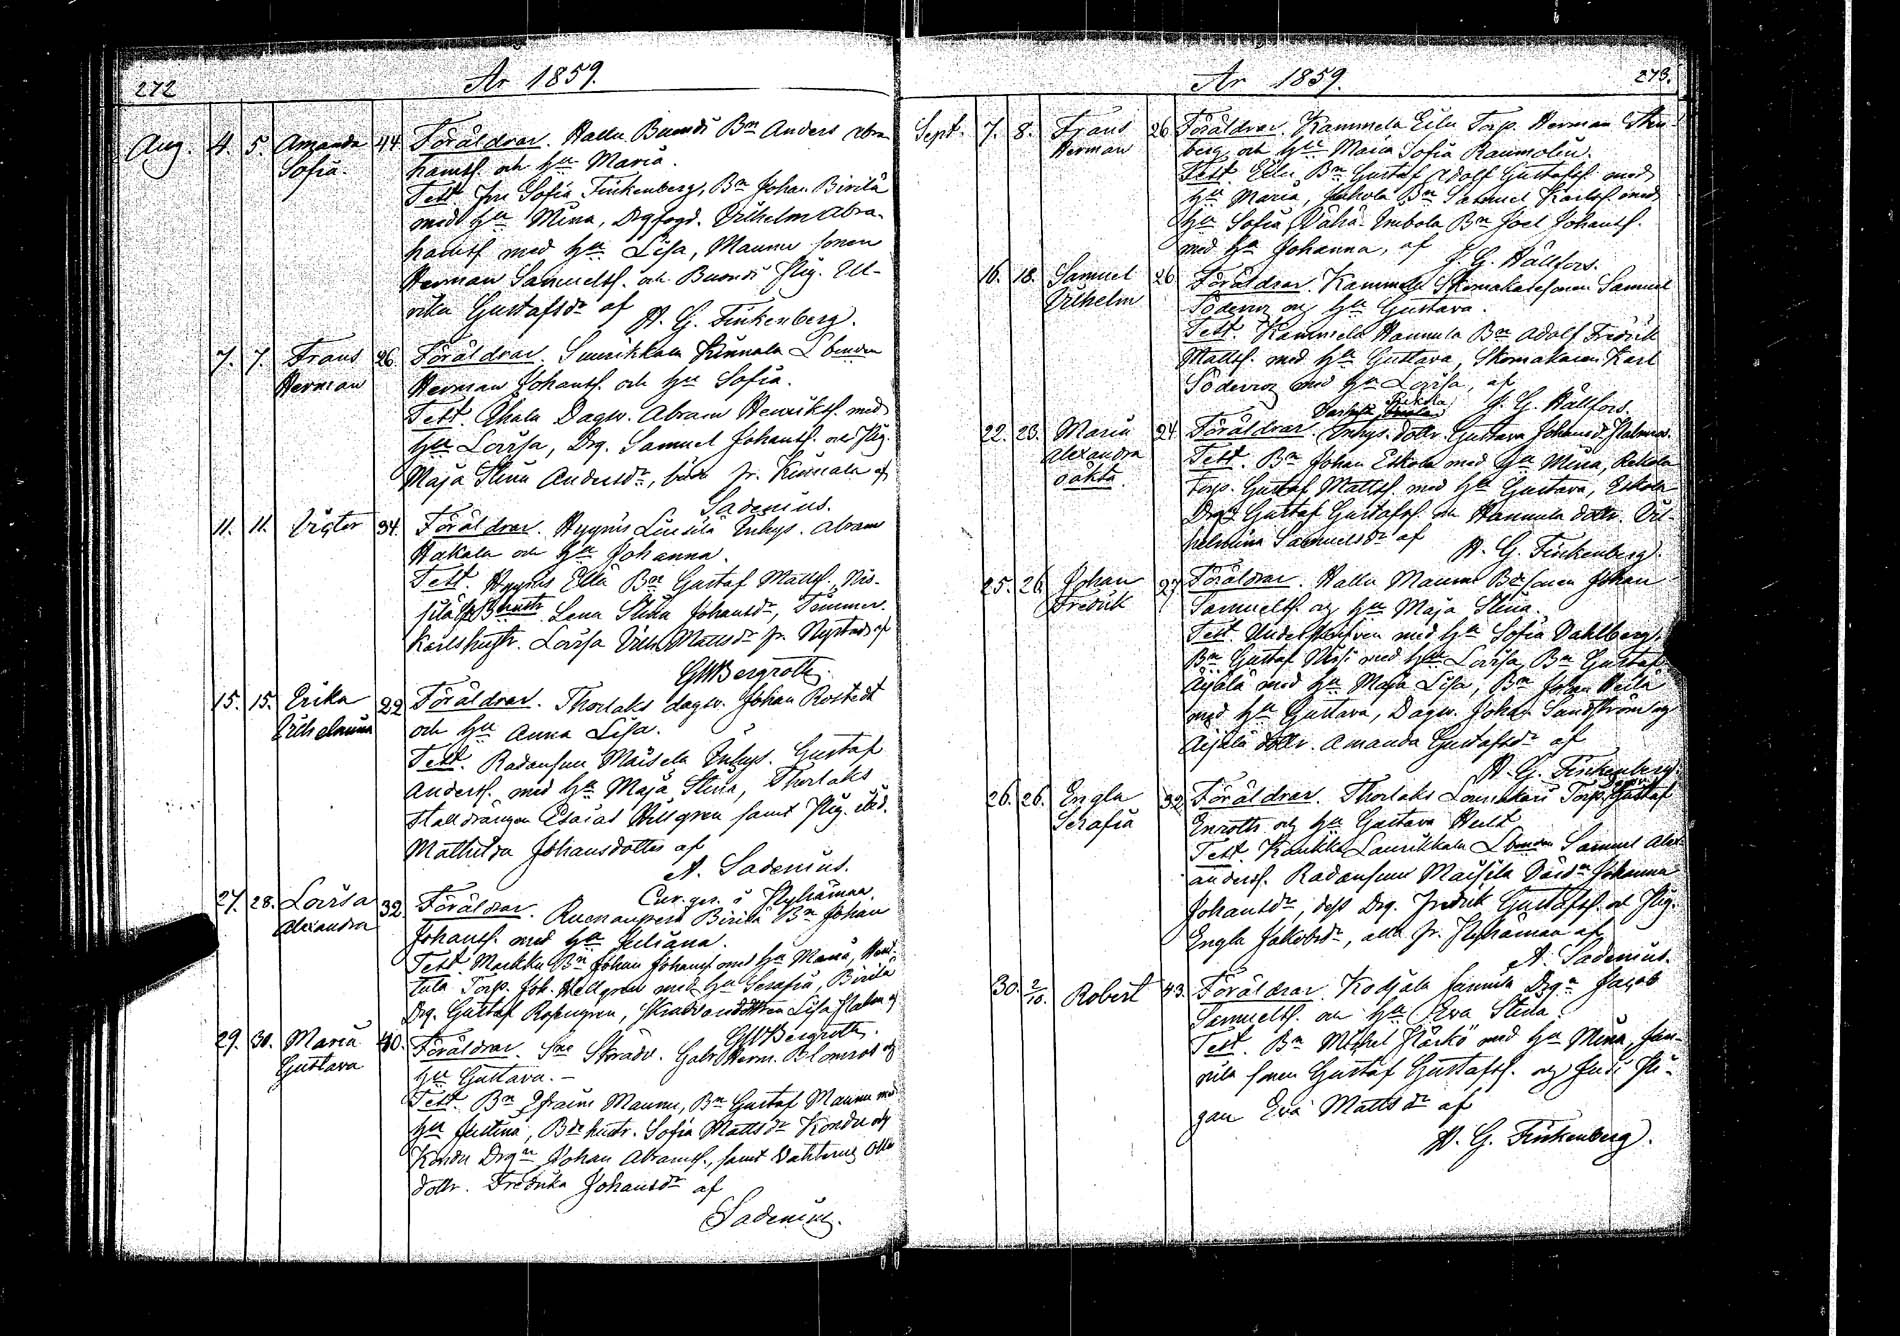 272
År 1859.
Aug. 4. 5. Amanda Sofia. 44. Föräldrar. Hallu Buendi Bn Anders Abra-
hamsf. och hu Maria.
Test. Jnr Sofia Finkenberg, Bn Johan Birilä
med hu Mina, Drgfogd. Vilhelm Abra-
hamsf. med hu Lisa, Maunu sonen
Herman Samuelsf. och Buendi Pig. Ul-
rika Gustafsdr af
H. G. Finkenberg.
7. 7. Frans Herman 26. Föräldrar. Laurikkala Kinnala Lbonden
Herman Johansf. och hu Sofia.
Test. Dagsv. Abram Henriksf. med
hu Lovisa, Drg. Samuel Johansf. och Pig.
Maja Stina Andersdr, fr. Kinnala af
Sadenius.
11. 11. Victor 34. Föräldrar. Hygnis Inhys. Abram
Hakala och hu Johanna.
Test. Hygnis Bn Gustaf Mattsf.
Lena Stina Johansdr, Timmer-
karlshustr. Lovisa Vilh. Mattsdr fr. Nystad af
GWBergroth.
15. 15. Erika Vilhelmina 22 Föräldrar. Thorlaks dagsv. Johan Rostedt
och hu Anna Lisa.
Test. Radansuu Mäisela Inhys. Gustaf
Andersf. med hu Maja Stina, Thorlaks
Stalldrängen Esaias Hillgren samt Pig.
Mathilda Johansdotter af
A. Sadenius.
27. 28. Lovisa Alexandra 32. Föräldrar. Ruonanperä Birilä Bn Johan
Johansf. med hu Juliana.
Test. Markku Bn Johan Johansf. med hu Maria,
Torp. Joh. Hellgren med hu Serafia, Birilä
Drg. Gustaf Rosengren, Lisa
GWBergroth.
29. 30. Maria Gustava 40. Föräldrar. Gabr. Herm. Blomros och
hu Gustava. –
Test. Bn Efraim Maunu, Bn Gustaf Maunu med
hu Justina, Bdehustr. Sofia Mattsdr Kondu och
Kondu Drgn Johan Abramsf., samt
dottr. Fredrika Johansdr af
Sadenius.
År 1859.
273.
Sept. 7. 8. Frans Herman 26 Föräldrar. Kammela Eilu Torp. Herman Sten-
berg och hu Maria Sofia Raumolin.
Test. Eilu Bn Gustaf Adolf Gustafsf. med
hu Maria, Bn Samuel Karlsf. med
hu Sofia, Vähä-Bn Joel Johansf.
med hu Johanna, af
J. G. Hällfors.
16. 18. Samuel Vilhelm 26. Föräldrar. Kammela Skomakaresonen Samuel
Söderros och hu Gustava.
Test. Kammela Hannula Bn Adolf Fredrik
Mattsf. med hu Gustava, Skomakaren Karl
Söderros med hu Lovisa, af
J. G. Hällfors.
22. 23. Maria Alexandra oäkta. 24 Föräldrar. Inhys. dottr. Gustava Johansdr
Test. Bn Johan Eskola med hu Mina, Rekola
Torp. Gustaf Mattsf. med hu Gustava, Eskola
Drg Gustaf Gustafsf. och Hannula dottr. Vil-
helmina Samuelsdr af
H. G. Finkenberg.
25. 26. Johan Fredrik 27. Föräldrar. Hallu Maunu Bdesonen Johan
Samuelsf. och hu Maja Stina.
Test. med hu Sofia Dahlberg,
Bn Gustaf med hu Lovisa, Bn Gustaf
Äijälä med hu Maja Lisa, Bn Johan Heilä
med hu Gustava, Dagsv. Johan Sandström och
Äijälä dottr. Amanda Gustafsdr af
H. G. Finkenberg.
26. 26. Engla Serafia 32. Föräldrar. Thorlaks Torp. Gustaf
Enroth och hu Gustava
Test. Kaukka Laurikkala Lbonden Samuel Alex-
andersf. Radansuu Mäisela Johanna
Johansdr, dess Drg. Fredrik Gustafsf. och Pig.
Engla Jakobsdr, alla fr. Pyhämaa af
A. Sadenius.
30. 2/10. Robert 43. Föräldrar. Kodjala Drgn Jacob
Samuelsf. och hu Eva Stina.
Test. Bn Michel med hu Mina,
sonen Gustaf Gustafsf. och Pi-
gan Eva Mattsdr af
H. G. Finkenberg.